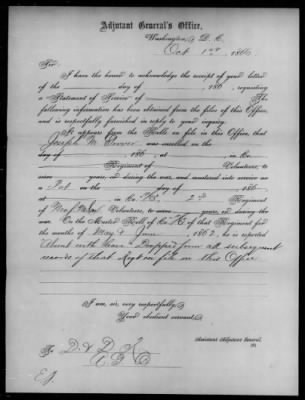 Adjutant General's Office,
Washington, D. C.
Oct 1st, 1866
Sir:
I have the honor to acknowledge the receipt of your letter
of the day of , 186 , requesting
a Statement of Service of The
following information has been obtained from the files of this Office, and
is respectfully furnished in reply to your inquiry.
It appears from the Rolls on file in this Office, that
Joseph M. was enrolled on the
day of , 186 , at , in Co.
Regiment of Volunteers, to
serve years, or during the war, and mustered into service as
a Pvt on the day of , 186 ,
at , in Co. "H", 2d Regiment of
Volunteers, to serve years, or during the
war. On the Muster Roll of Co. "H" of that Regiment for
the months of May & June, 1862, he is reported
"Absent with leave" Dropped from all subsequent
records of that Regt on file in this Office
I am, sir, very respectfully,
Your obedient servant,
Assistant Adjutant General.
To